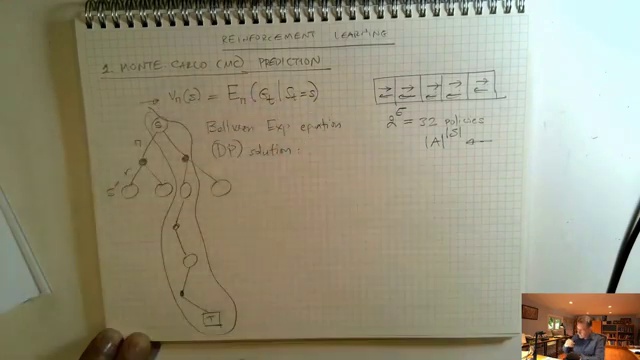 REINFORCEMENT LEARNING
1. MONTE CARLO (MC) PREDICTION
→ Vπ(s) = Eπ(Gt | St = s)
Bellman Exp. equation
(DP) solution:
2^5 = 32 policies
|A|^|S| ←
S
π
r
s'
T